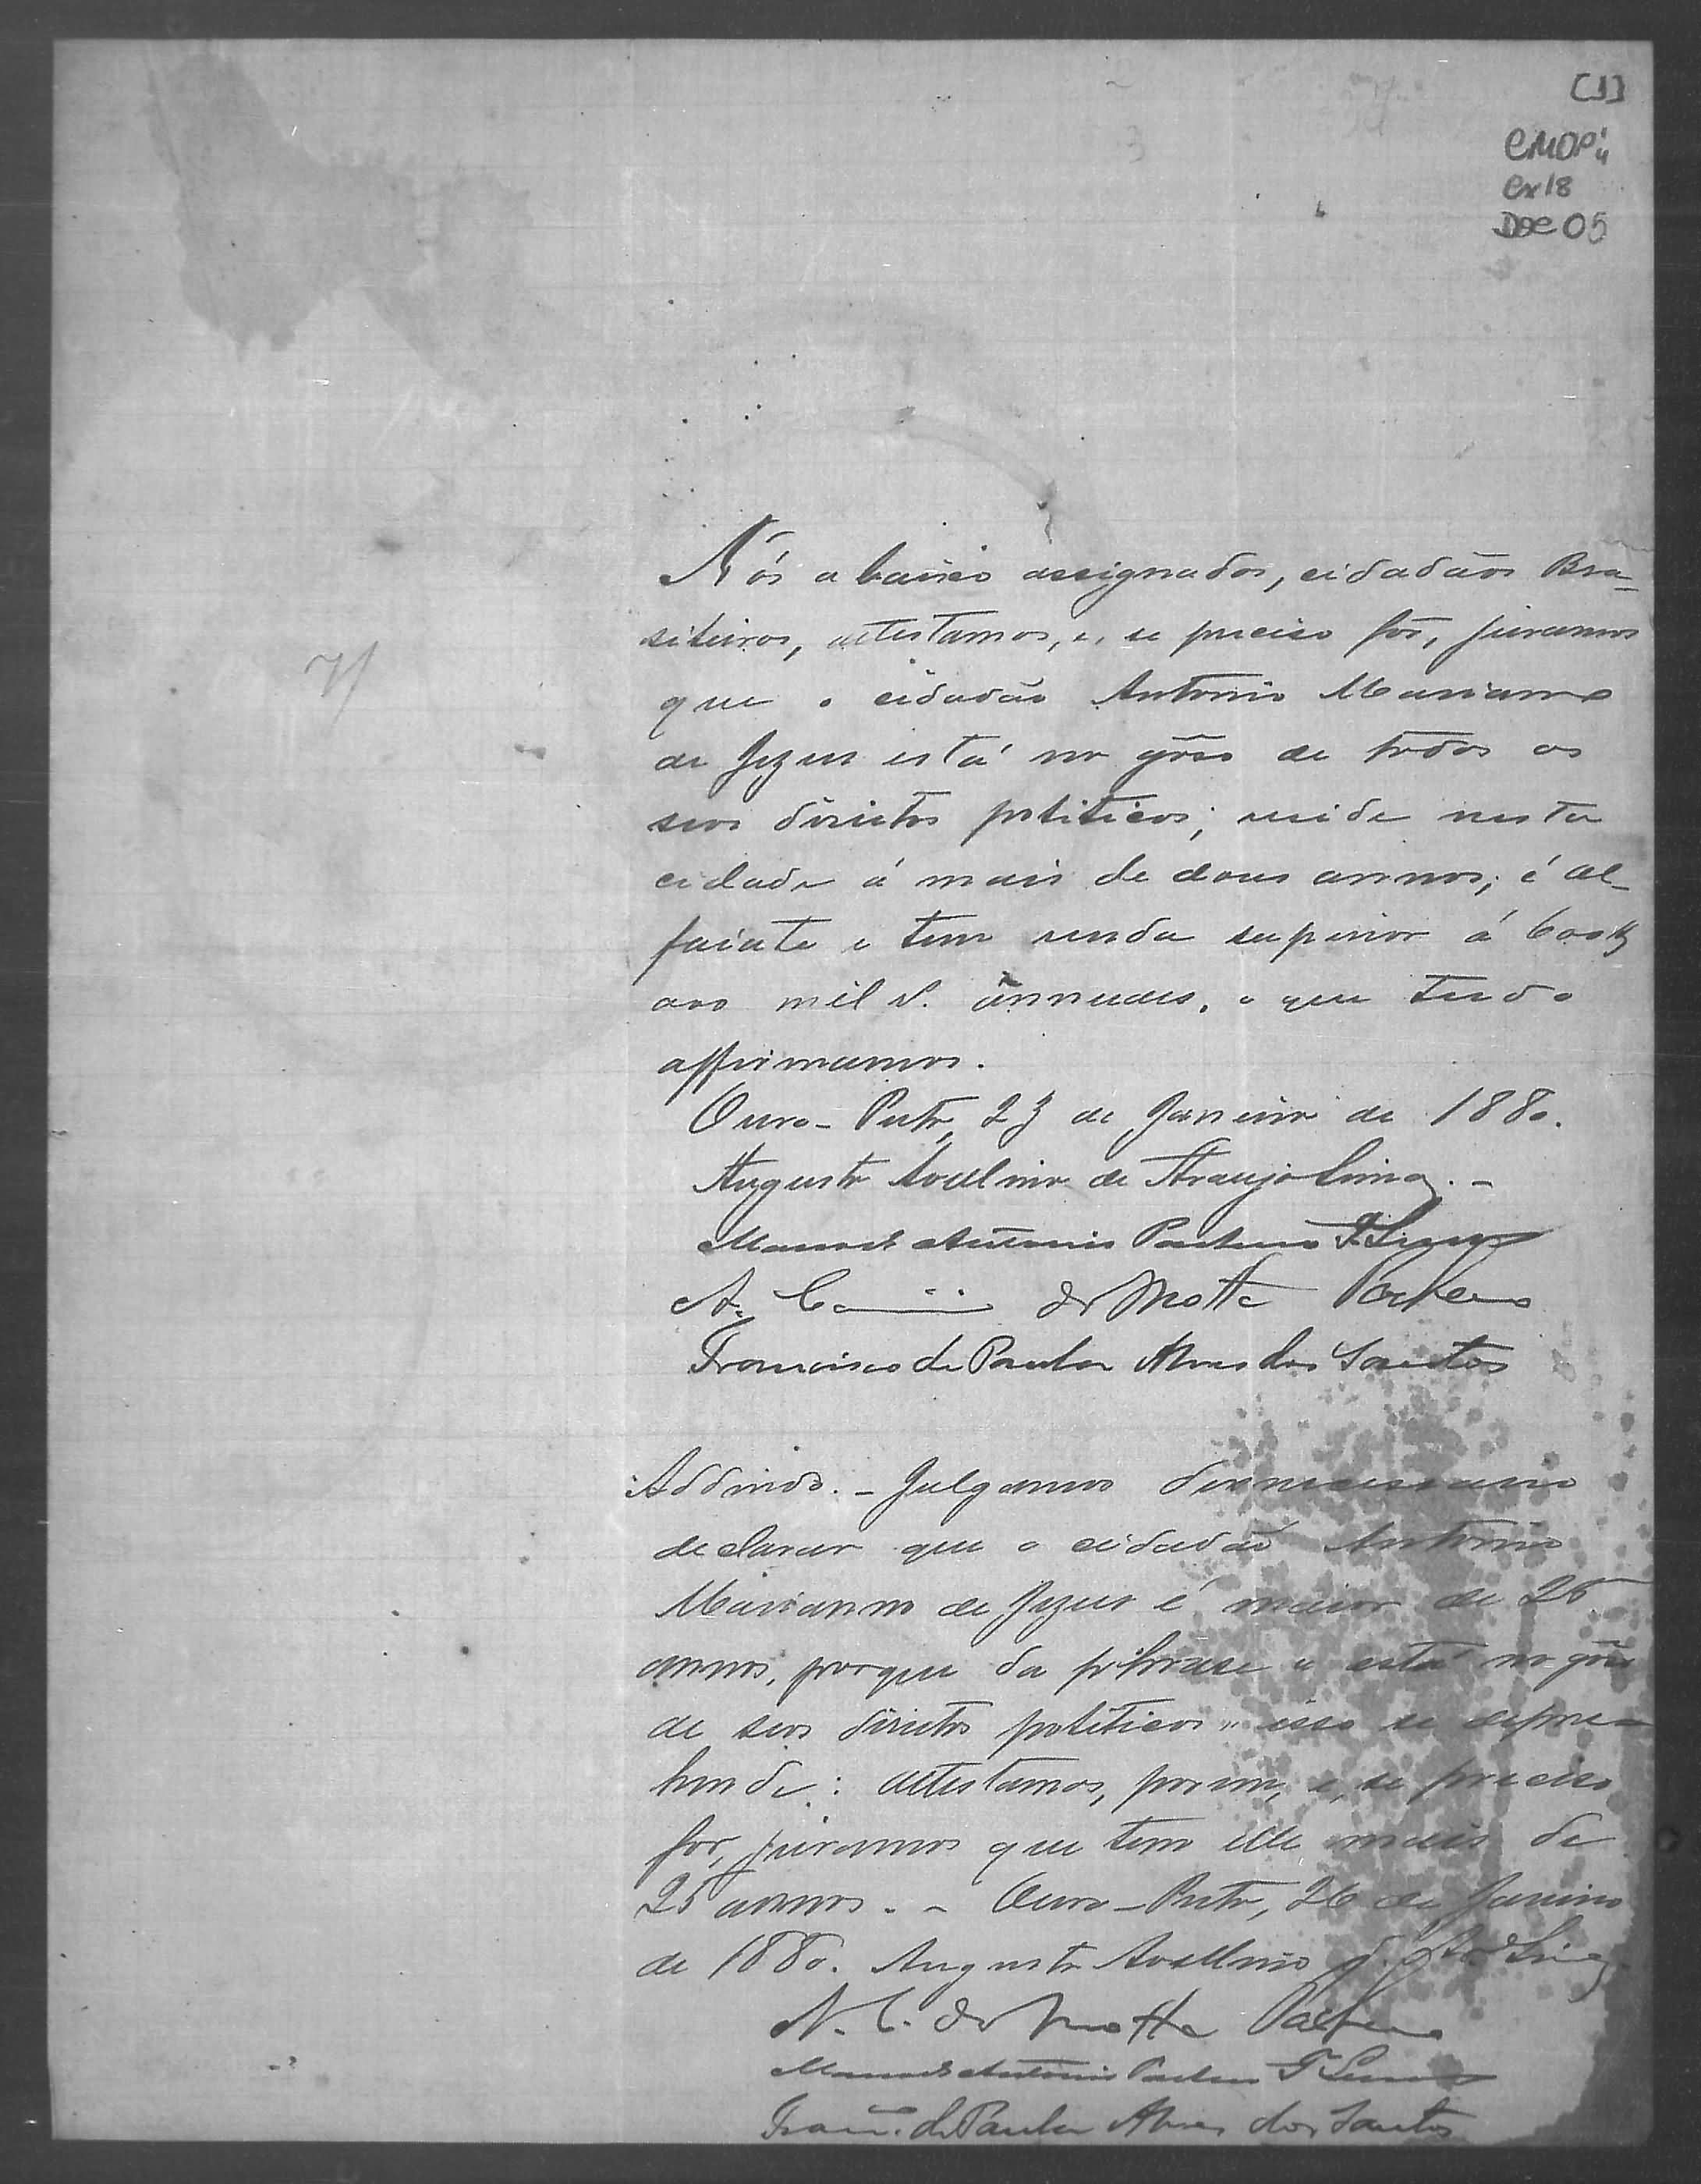 [1]
CMOP
Cx 18
Doc 05
Nós a baixo assignados, cidadãos Bra-
sileiros, attestamos, e, se preciso fôr, juramos
que o cidadão Antonio Marianno
de Jezus está no gôso de todos os
seos direitos politicos; reside nesta
cidade á mais de dous annos; é al-
faiate e tem renda superior á 600$
mil r. annuaes, o que tudo
affirmamos.
Ouro-Preto, 23 de Janeiro de 1880.
Augusto Avellino de Araujo Lima. -
Manoel Antonio Pacheco
A. da Motta Pacheco
Francisco de Paula Alves dos Santos
Addindo. - Julgamos desnecessario
declarar que o cidadão Antonio
Marianno de Jezus é maior de 25
annos, porque da phrase "está no gôso
de seos direitos politicos" isso se depre-
hende: attestamos, porem, e, se preciso
for, juramos que tem elle mais de
25 annos. - Ouro-Preto, 26 de Janeiro
de 1880. Augusto Avellino d. Ar.º Lima
A. C. da Motta Pacheco
Manoel Antonio Pacheco
Fran.co de Paula Alves dos Santos